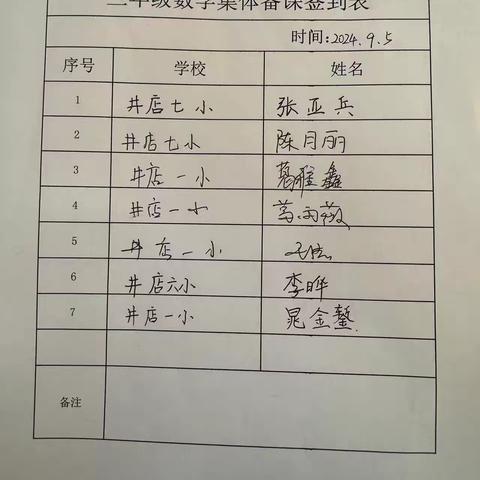 年级数学集体备课签到表
时间:2024.9.5
序号 学校 姓名
1 井店七小 张亚兵
2 井店七小 陈月丽
3 井店一小 葛雅鑫
4 井店一小
5 井店一小
6 井店六小 李晔
7 井店一小 晁金鏊
备注